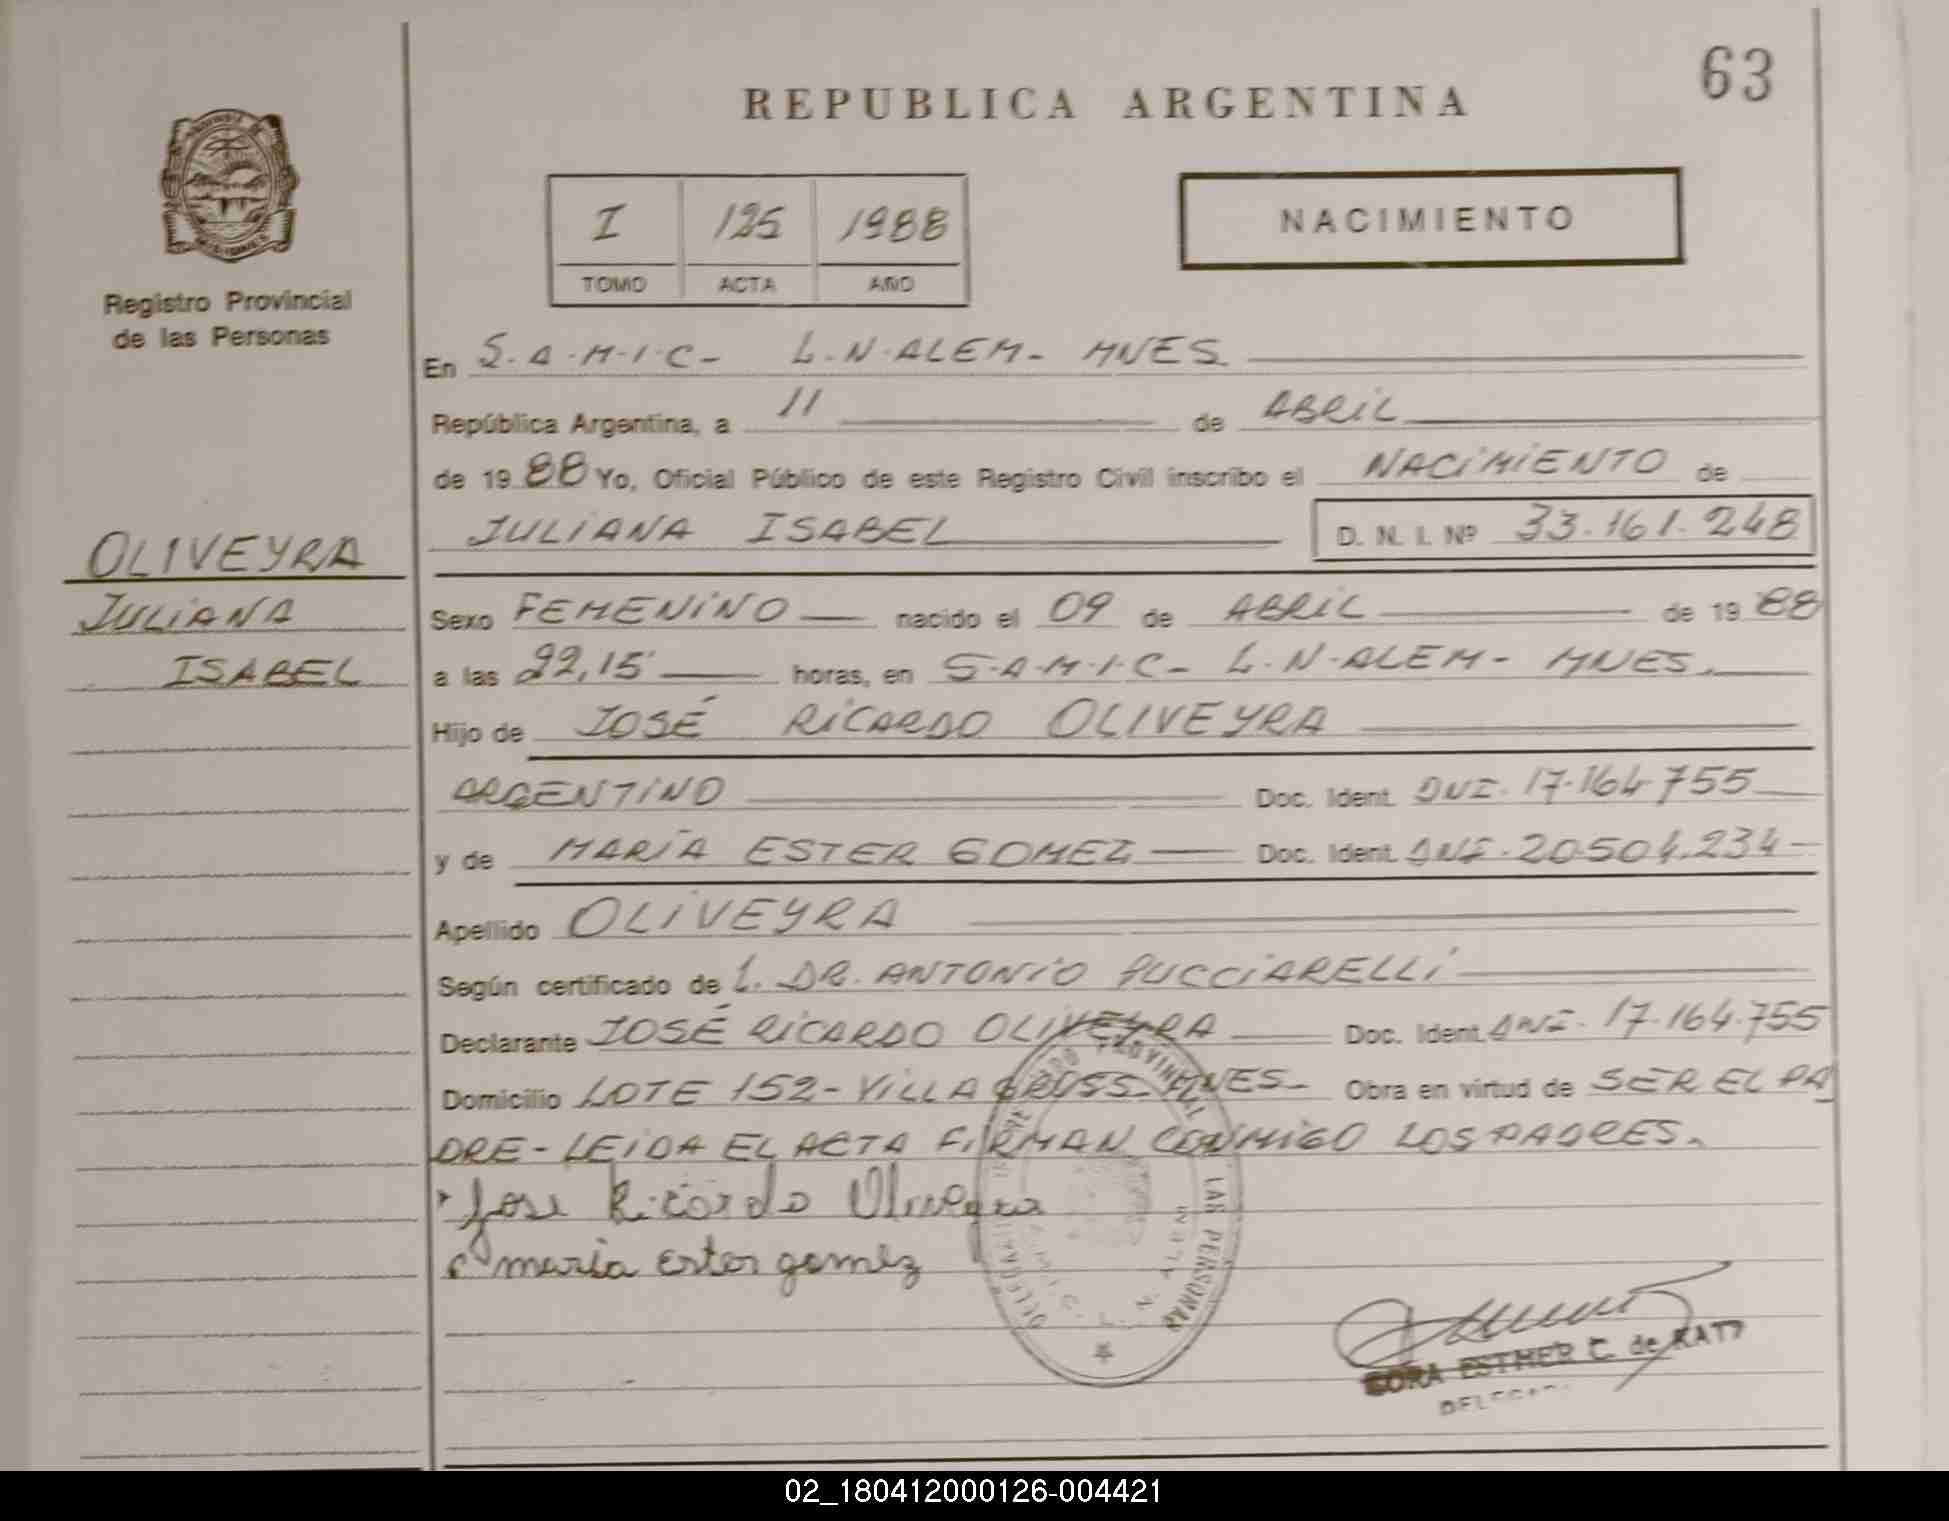 63
REPUBLICA ARGENTINA
I 125 1988
TOMO ACTA AÑO
NACIMIENTO
Registro Provincial
de las Personas
En S.A.M.I.C- L.N.ALEM- MNES
República Argentina, a 11 de ABRIL
de 1988 Yo, Oficial Público de este Registro Civil inscribo el NACIMIENTO de
JULIANA ISABEL D. N. I. Nº 33.161.248
OLIVEYRA
JULIANA
ISABEL
Sexo FEMENINO nacido el 09 de ABRIL de 1988
a las 22,15 horas, en S.A.M.I.C- L.N.ALEM- MNES.
Hijo de JOSÉ RICARDO OLIVEYRA
ARGENTINO Doc. Ident. DNI. 17.164.755
y de MARÍA ESTER GOMEZ Doc. Ident. DNI. 20.504.234
Apellido OLIVEYRA
Según certificado de L. DR. ANTONIO PUCCIARELLI
Declarante JOSÉ RICARDO OLIVEYRA Doc. Ident. DNI. 17.164.755
Domicilio LOTE 152- VILLA MNES- Obra en virtud de SER EL PA
DRE- LEIDA EL ACTA FIRMAN CONMIGO LOS PADRES.
Jose Ricardo Oliveyra
maria Ester gomez
PROVINCIAL
LAS PERSONAS
L. N. ALEM
ESTHER C. de
02_180412000126-004421